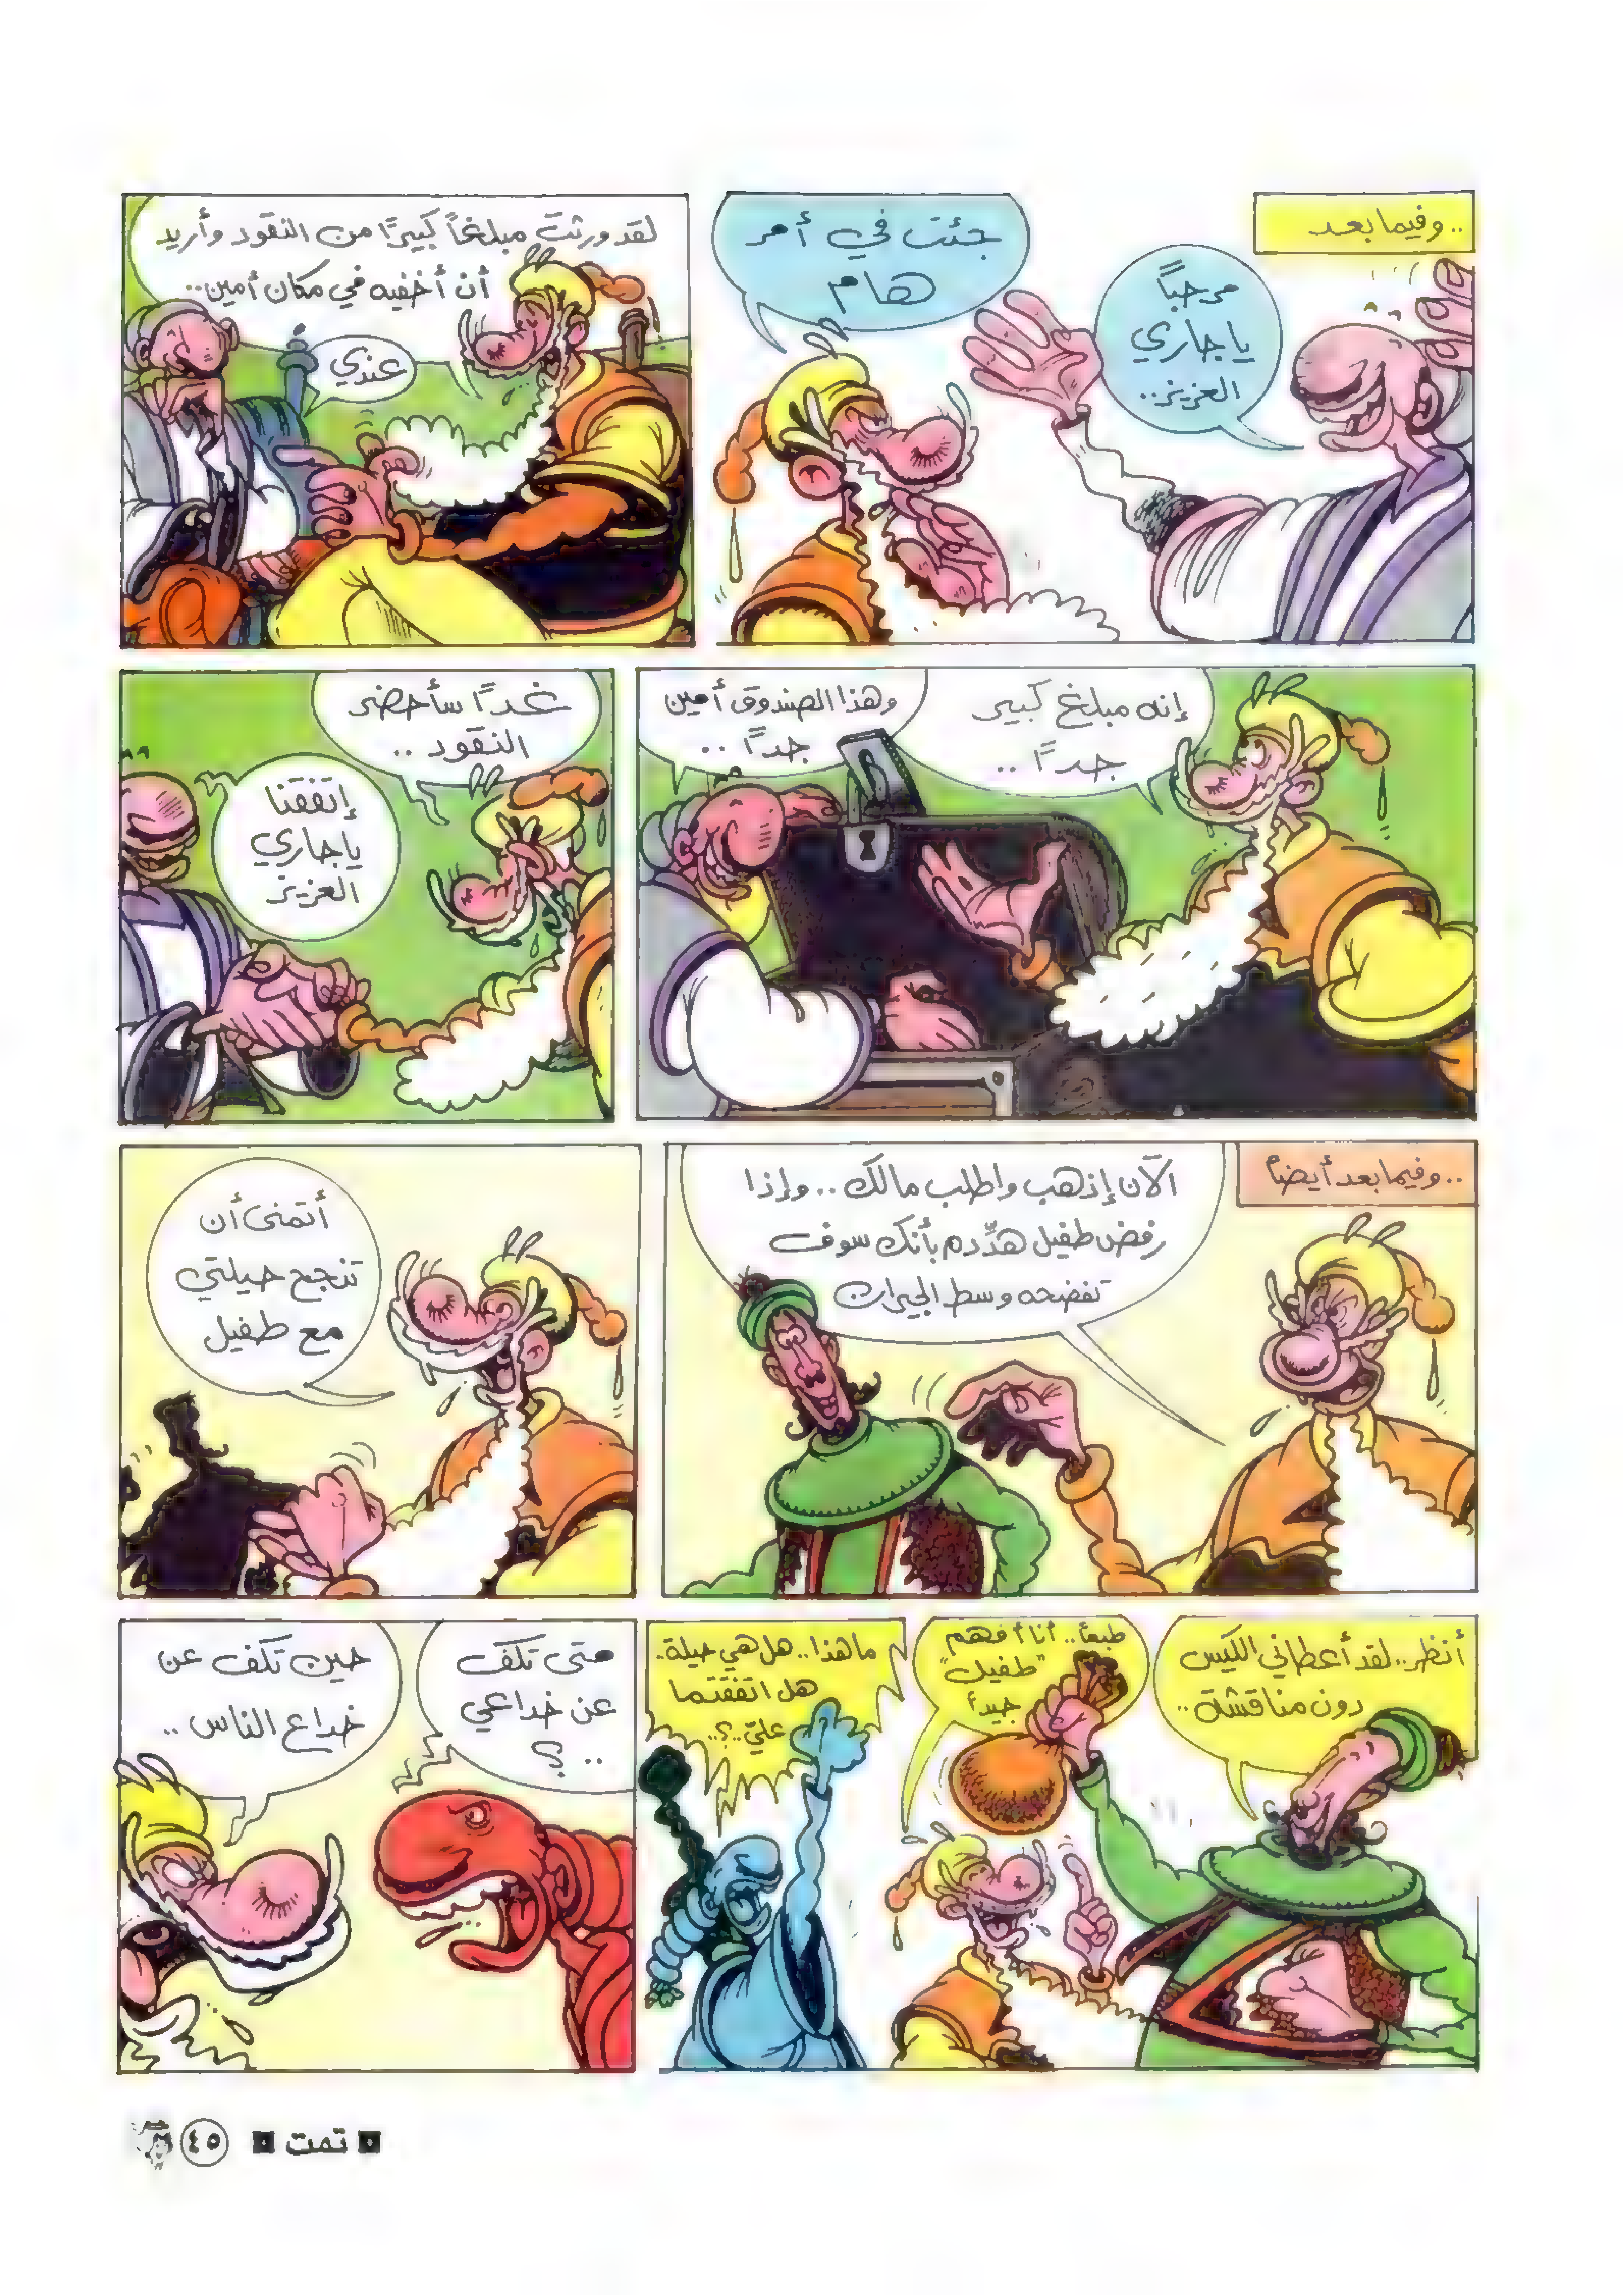 ..وفيما بعد
مرحباً
يا جاري
العزيز..
جئت في أمر
هام
لقد ورثت مبلغاً كبيرًا من النقود وأريد
أن أخفيه في مكان أمين..
عندي
إنه مبلغ كبير
جدًا..
وهذا الصندوق أمين
جدًا..
غدًا سأحضر
النقود..
إتفقنا
يا جاري
العزيز
..وفيما بعد أيضاً
الآن إذهب واطلب مالك.. وإذا
رفض طفيل هدِّده بأنك سوف
تفضحه وسط الجيران
أتمنى أن
تنجح حيلتي
مع طفيل
أنظر.. لقد أعطاني الكيس
دون مناقشة..
طبعاً.. أنا أفهم
"طفيل"
جيداً
ما هذا.. هل هي حيلة..
هل اتفقتما
عليّ..؟..
متى تكف
عن خداعي
..؟
حين تكف عن
خداع الناس..
تمت
٤٥